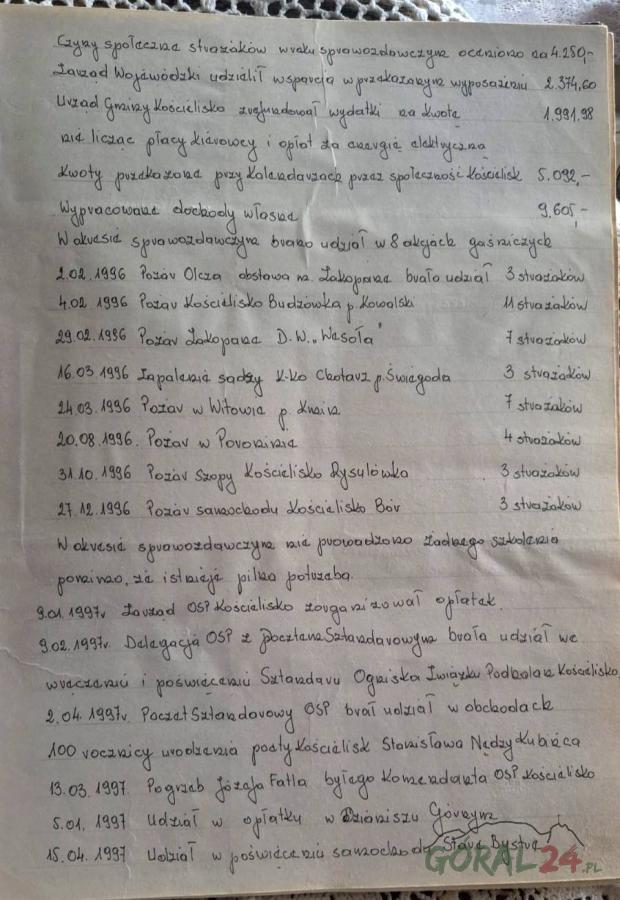 Czyny społeczne strażaków w roku sprawozdawczym oceniono na 4.250,-
Zarząd Wojewódzki udzielił wsparcia w przekazanym wyposażeniu 2.374,60
Urząd Gminy Kościelisko zrefundował wydatki na kwotę 1.991,98
nie licząc płacy kierowcy i opłat za energię elektryczną
Kwoty przekazane przy kalendarzach przez społeczność Kościelisk 5.092,-
Wypracowane dochody własne 9.605,-
W okresie sprawozdawczym brano udział w 8 akcjach gaśniczych
2.02.1996 Pożar Olcza obstawa m. Zakopane brało udział 3 strażaków
4.02 1996 Pożar Kościelisko Budzówka p. Kowalski 11 strażaków
29.02.1996 Pożar Zakopane D.W. „Wesoła" 7 strażaków
16.03 1996 Zapalenie sadzy K-ko Chotarz p. Świegoda 3 strażaków
24.03.1996 Pożar w Witowie p. 7 strażaków
20.08.1996. Pożar w Poroninie 4 strażaków
31.10.1996 Pożar Szopy Kościelisko Rysulówka 3 strażaków
27.12.1996 Pożar samochodu Kościelisko Bór 3 strażaków
W okresie sprawozdawczym nie prowadzono żadnego szkolenia
pomimo, że istnieje pilna potrzeba.
9.01.1997r. Zarząd OSP Kościelisko zorganizował opłatek.
9.02.1997r. Delegacja OSP z pocztem Sztandarowym brała udział we
wręczeniu i poświęceniu Sztandaru Ogniska Związku Podhalan Kościelisko,
2.04.1997r. Poczet Sztandarowy OSP brał udział w obchodach
100 rocznicy urodzenia poety Kościelisk Stanisława Nędzy Kubińca
13.03.1997. Pogrzeb Józefa Fatla byłego Komendanta OSP Kościelisko
5.01.1997 Udział w opłatku w Dzianiszu Górnym
15.04.1997 Udział w poświęceniu samochodu Stare Bystre
GORAL24.PL